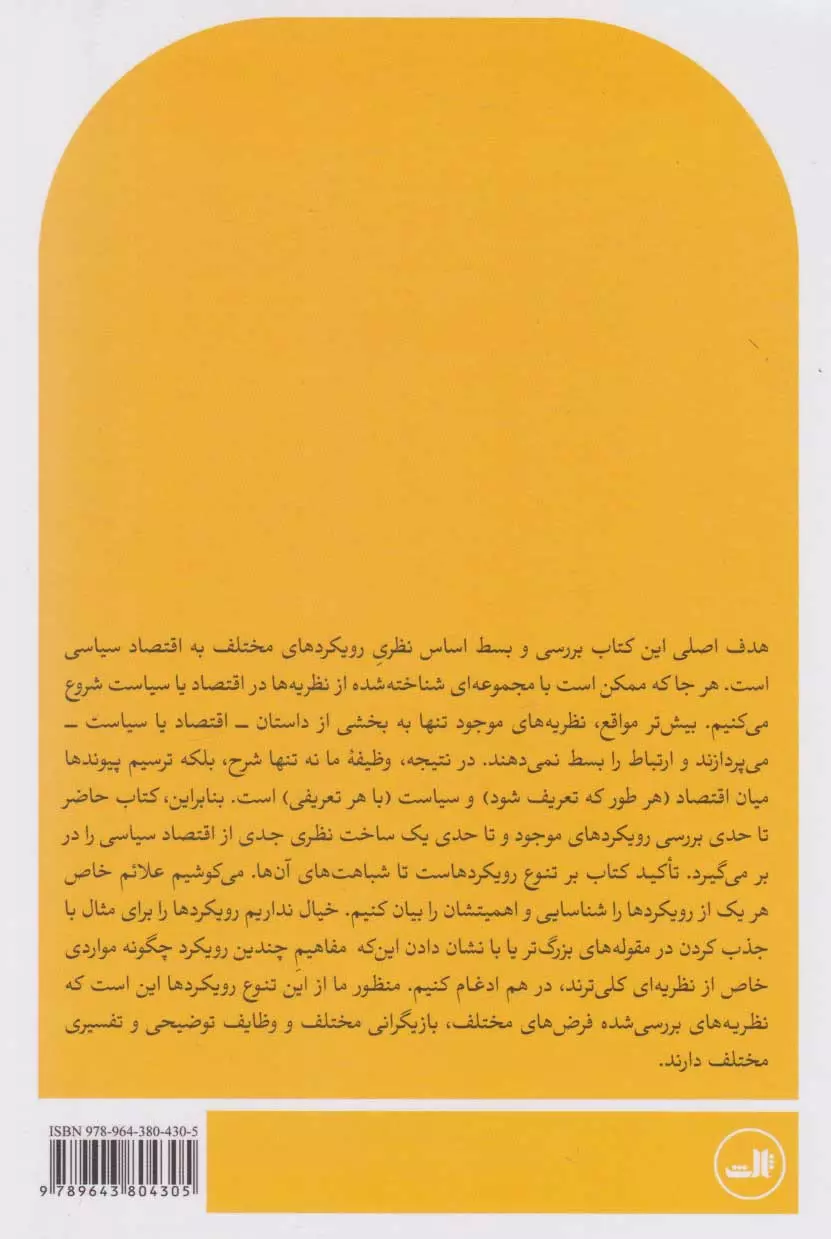 هدف اصلی این کتاب بررسی و بسط اساس نظریِ رویکردهای مختلف به اقتصاد سیاسی
است. هر جا که ممکن است با مجموعه‌ای شناخته‌شده از نظریه‌ها در اقتصاد یا سیاست شروع
می‌کنیم. بیش‌تر مواقع، نظریه‌های موجود تنها به بخشی از داستان ــ اقتصاد یا سیاست ــ
می‌پردازند و ارتباط را بسط نمی‌دهند. در نتیجه، وظیفهٔ ما نه تنها شرح، بلکه ترسیم پیوندها
میان اقتصاد (هر طور که تعریف شود) و سیاست (با هر تعریفی) است. بنابراین، کتاب حاضر
تا حدی بررسی رویکردهای موجود و تا حدی یک ساخت نظری جدی از اقتصاد سیاسی را در
بر می‌گیرد. تأکید کتاب بر تنوع رویکردهاست تا شباهت‌های آن‌ها. می‌کوشیم علائم خاص
هر یک از رویکردها را شناسایی و اهمیتشان را بیان کنیم. خیال نداریم رویکردها را برای مثال با
جذب کردن در مقوله‌های بزرگ‌تر یا با نشان دادن این‌که مفاهیمِ چندین رویکرد چگونه مواردی
خاص از نظریه‌ای کلی‌ترند، در هم ادغام کنیم. منظور ما از این تنوع رویکردها این است که
نظریه‌های بررسی‌شده فرض‌های مختلف، بازیگرانی مختلف و وظایف توضیحی و تفسیری
مختلف دارند.
ISBN 978-964-380-430-5
9 789643 804305
ثالث